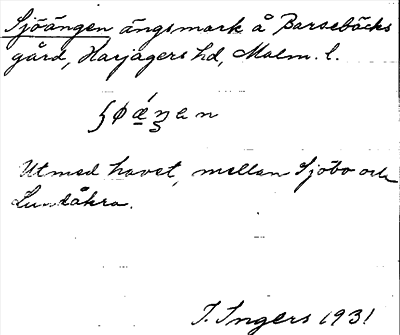 Sjöängen ängsmark å Barsebäcks
gård, Harjagers hd, Malm. l.
Utmed havet, mellan Sjöbo och
Lundåkra.
I. Ingers 1931